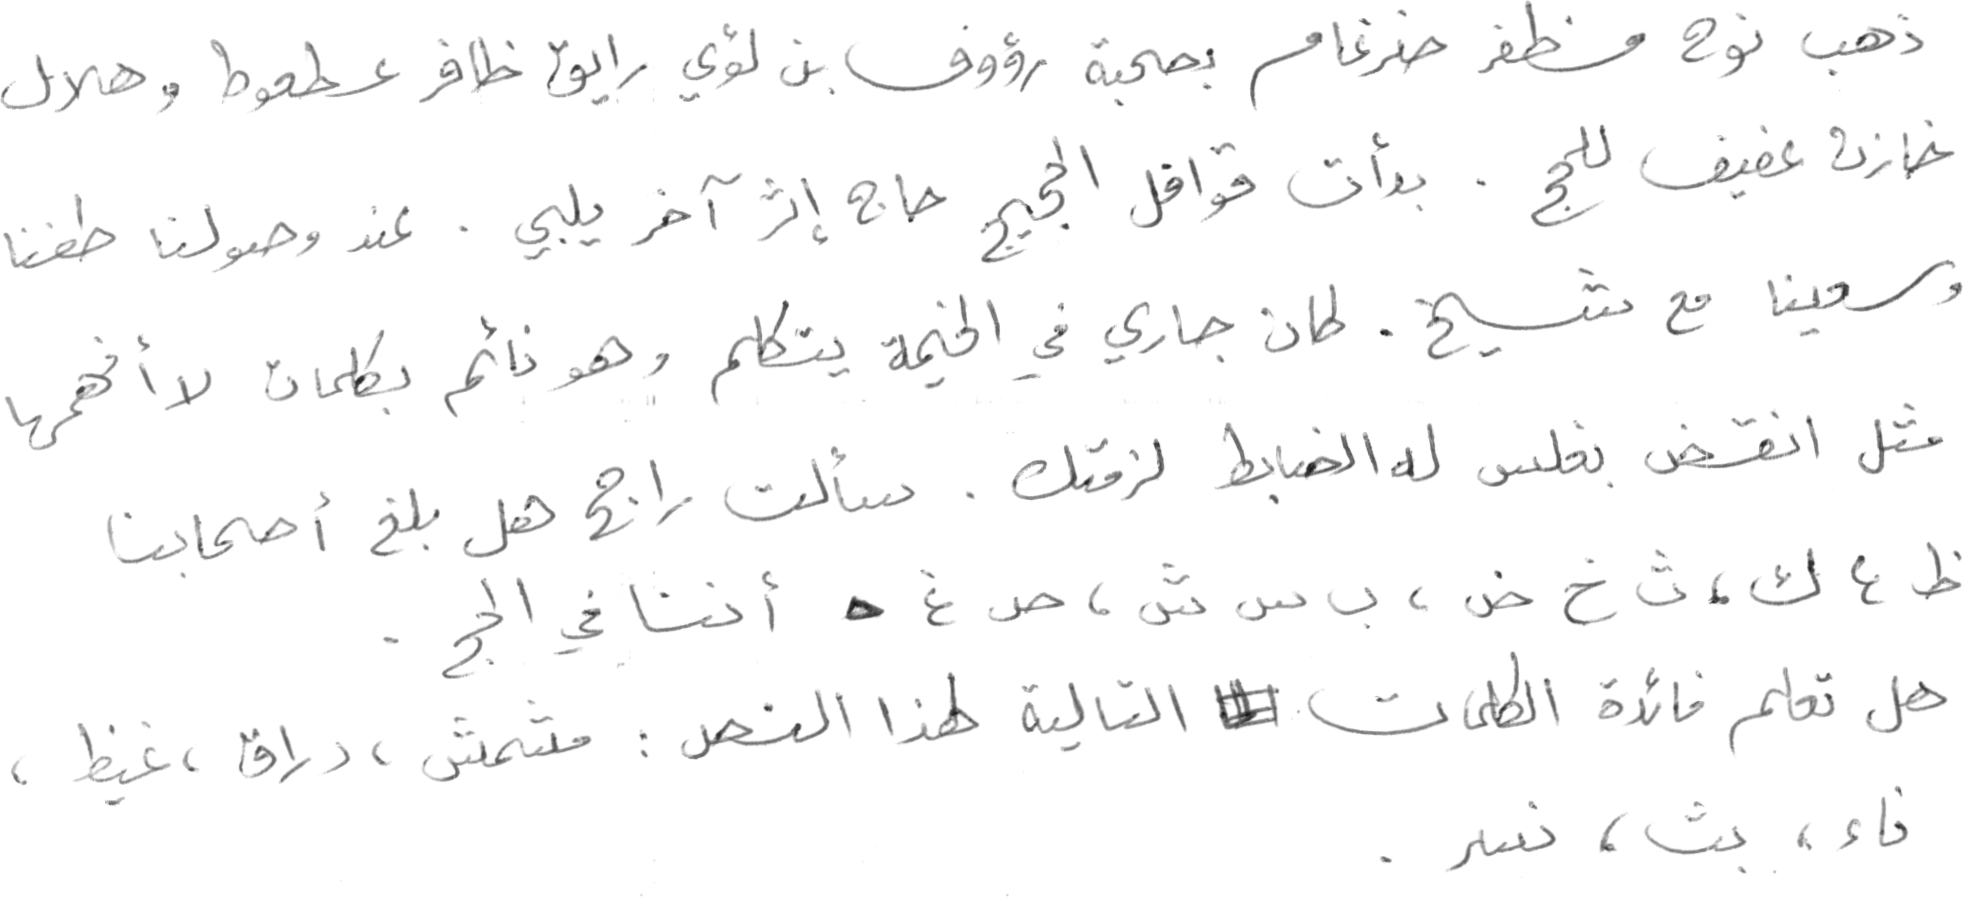 ذهب نوح مظفر ضرغام بصحبة رؤوف بن لؤي رايق ظافر عطعوط وهلال
خازن عفيف للحج . بدأت قوافل الحجيج حاج إثر آخر يلبي . عند وصولنا طفنا
وسعينا مع شيخ . كان جاري في الخيمة يتكلم وهو نائم بكلمات لا أفهمها
مثل انقض بغلس له الضابط لزمتك . سألت راجح هل بلغ أصحابنا
ظ ع ك ، ث خ ض ، ب س ش ، ص غ ه أننا في الحج .
هل تعلم فائدة الكلمات التالية لهذا النص : مشمش ، دراق ، غيظ ،
فاء ، بث ، نسر .